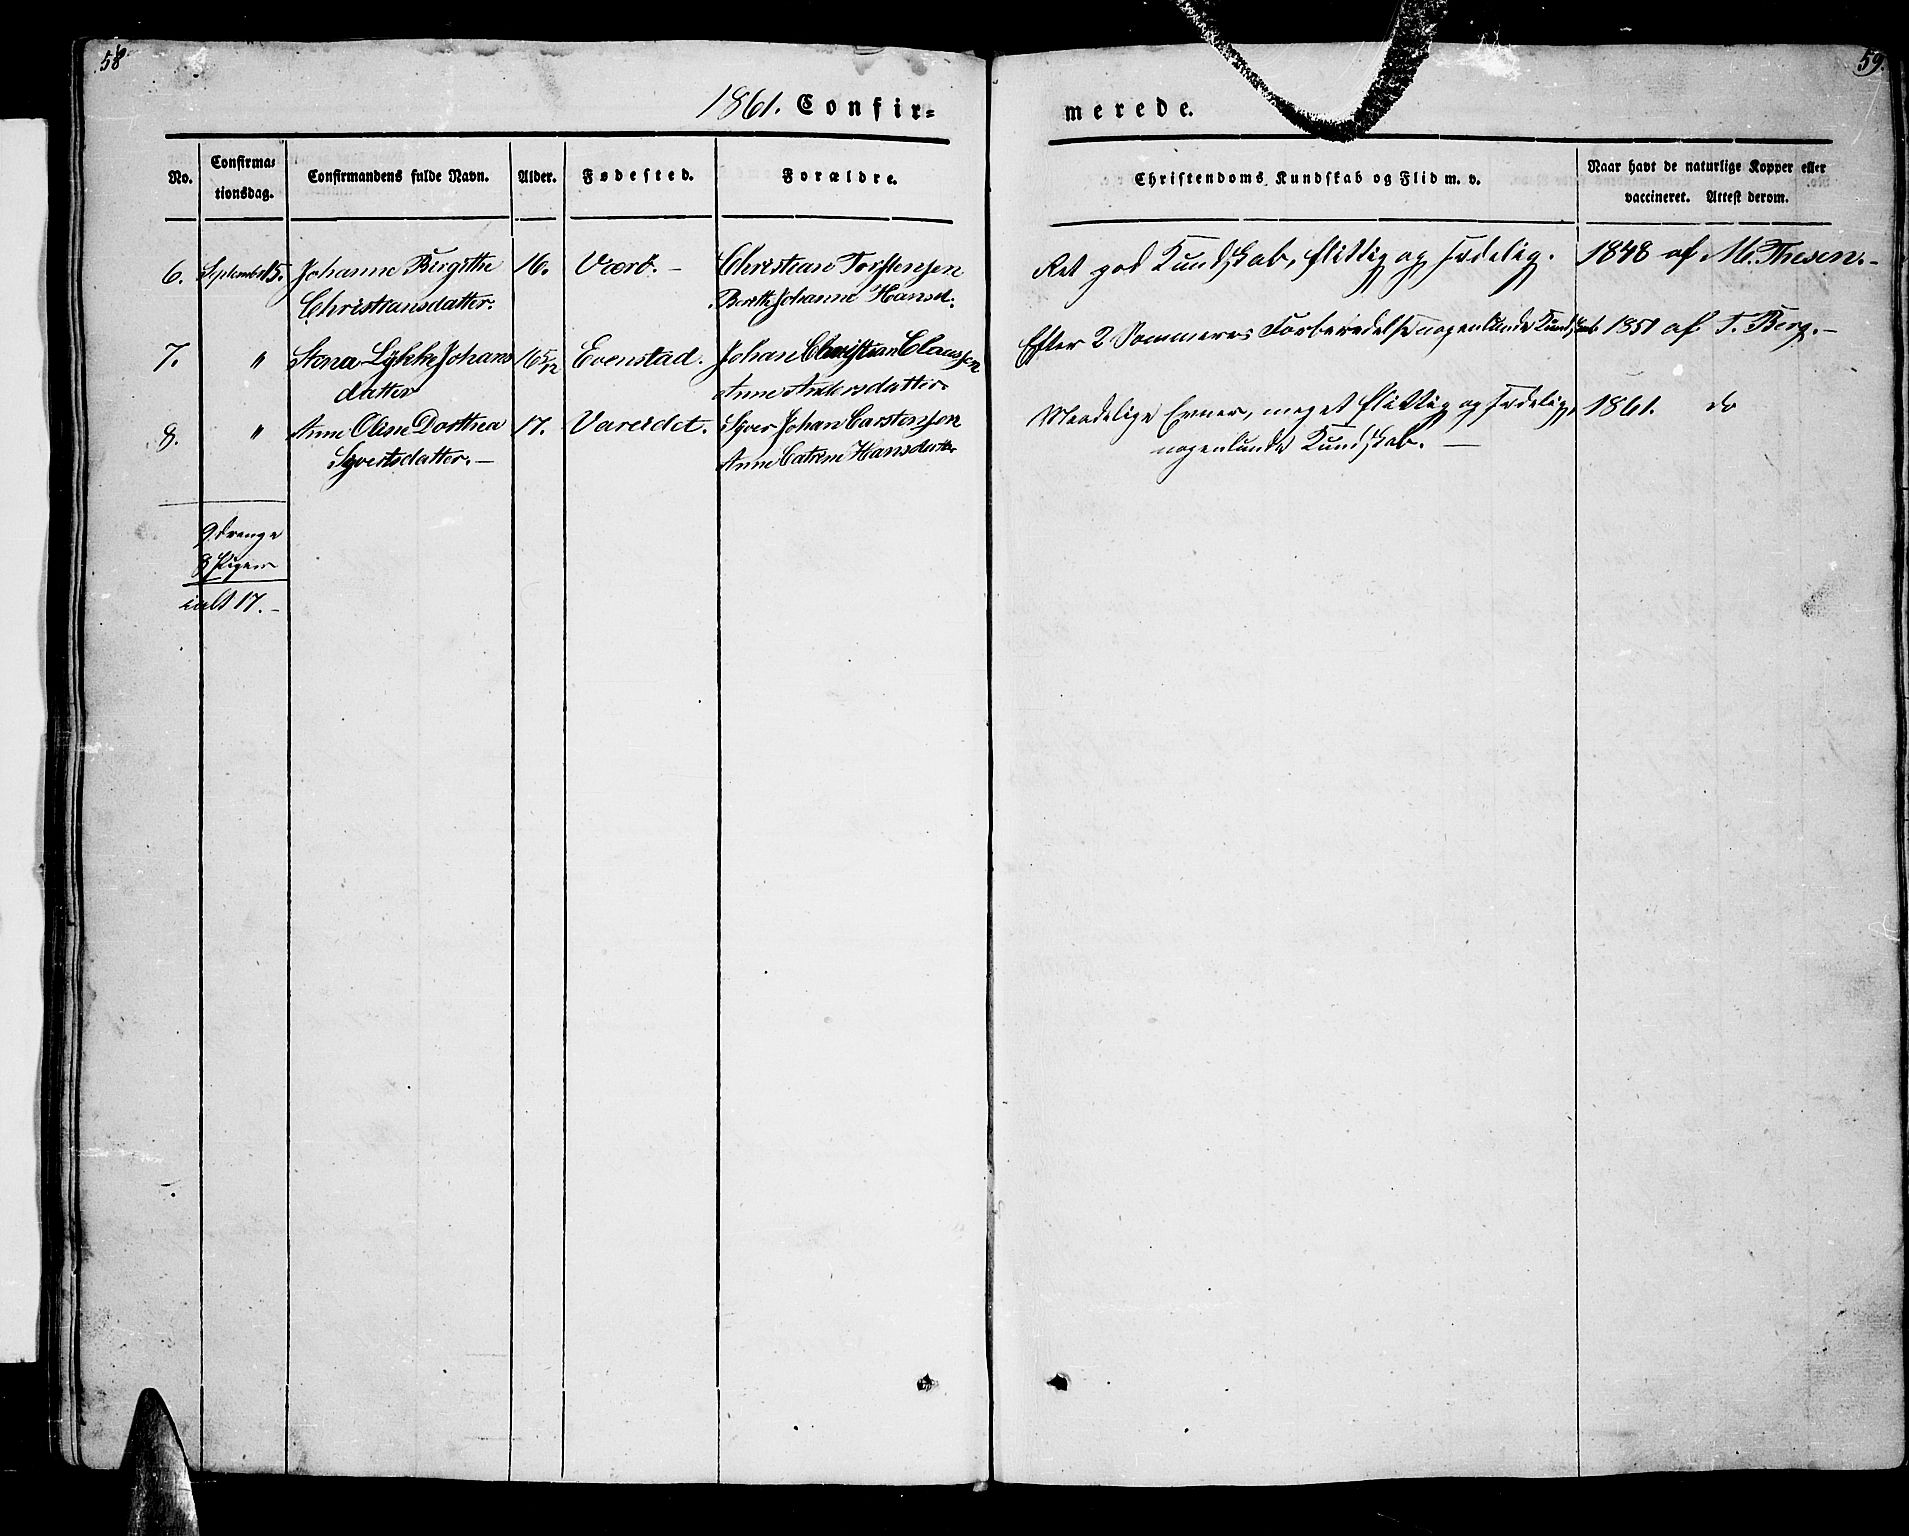 58
59.
1861. Confir=
merede.
No.
Confirma=
tionsdag.
Confirmandens fulde Navn.
Alder.
Fødested.
Forældre.
Christendoms Kundskab og Flid m. v.
Naar havt de naturlige Kopper eller
vaccineret. Attest derom.
6. September 15. Johanne Birgithe 16. Værø. — Christian Torstensen Ret god Kundskab, flittig og sædelig. 1848 af M. Thesen. —
Christiansdatter. Bereth Johanne Hansd.
7. " Lykke Johans 16 5/12 Evenstad. Johan Christian Claussen Efter 2 Sommeres Forberedelse nogenlunde Kundskab 1851 af T. Berg. —
datter Anne Andersdatter
8. " Anne Oline Dorthea 17. Vareidet. Syver Johan Carstensen Maadelige Evner, meget flittig og sædelig, 1861. do
Syvertsdatter. — Anne Catrine Hansdatter nogenlunde Kundskab. —
9 Drenge
8 Piger
ialt 17. —